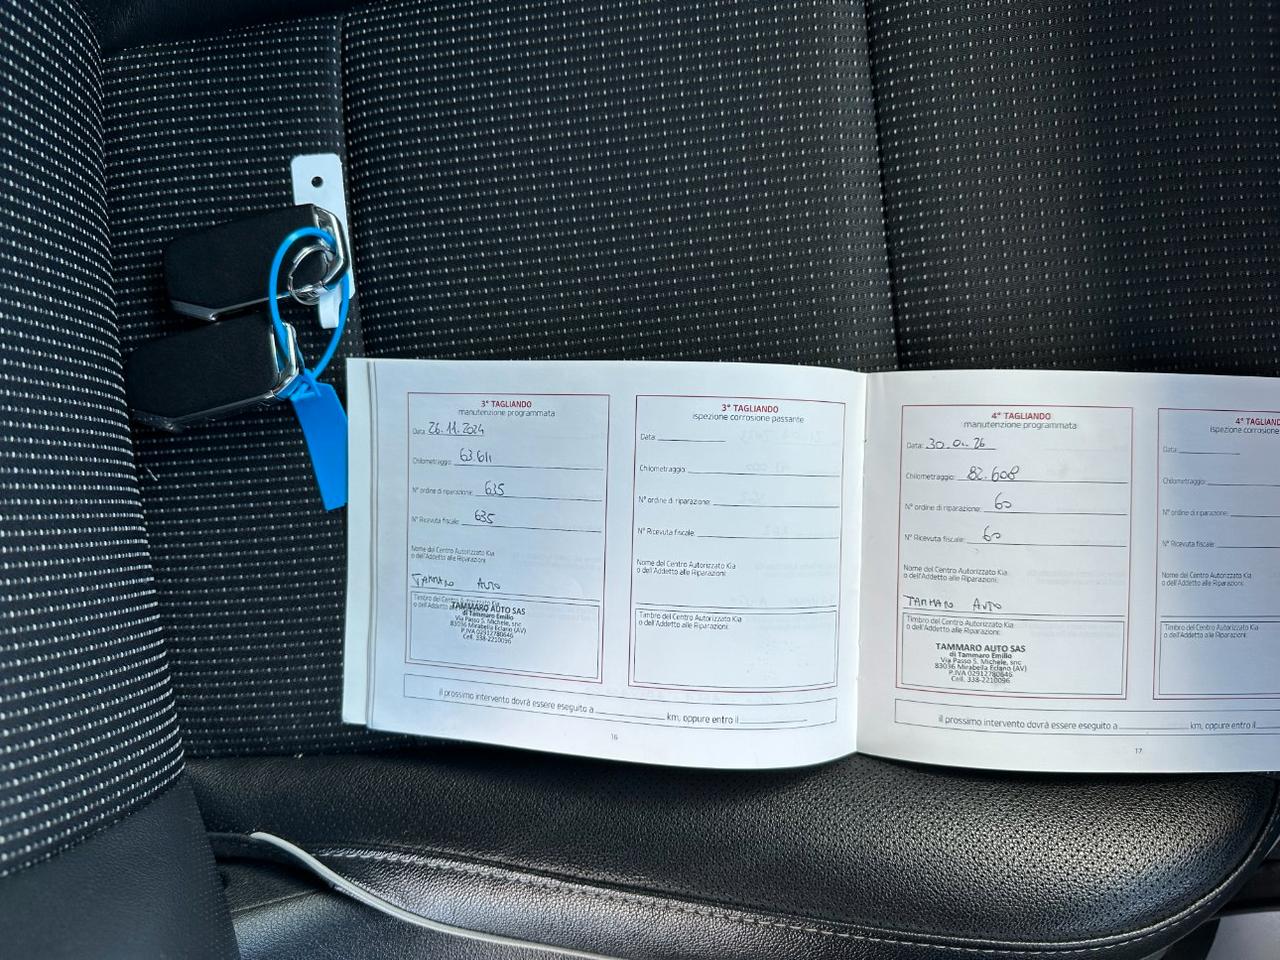 3° TAGLIANDO
manutenzione programmata
Data: 26.11.2024
Chilometraggio: 63611
N° ordine di riparazione: 635
N° Ricevuta fiscale: 635
Nome del Centro Autorizzato Kia
o dell'Addetto alle Riparazioni:
TAMMARO AUTO
Timbro del Centro Autorizzato Kia
o dell'Addetto alle
TAMMARO AUTO SAS
di Tammaro Emilio
Via Passo S. Michele, snc
83036 Mirabella Eclano (AV)
P.IVA 02912780646
Cell. 338-2210096
3° TAGLIANDO
ispezione corrosione passante
Data:
Chilometraggio:
N° ordine di riparazione:
N° Ricevuta fiscale:
Nome del Centro Autorizzato Kia
o dell'Addetto alle Riparazioni:
Timbro del Centro Autorizzato Kia
o dell'Addetto alle Riparazioni:
il prossimo intervento dovrà essere eseguito a km, oppure entro il
16
4° TAGLIANDO
manutenzione programmata
Data: 30.01.26
Chilometraggio: 82.608
N° ordine di riparazione: 60
N° Ricevuta fiscale: 60
Nome del Centro Autorizzato Kia
o dell'Addetto alle Riparazioni:
TAMMARO AUTO
Timbro del Centro Autorizzato Kia
o dell'Addetto alle Riparazioni:
TAMMARO AUTO SAS
di Tammaro Emilio
Via Passo S. Michele, snc
83036 Mirabella Eclano (AV)
P.IVA 02912780646
Cell. 338-2210096
4° TAGLIAND
ispezione corrosione
Data:
Chilometraggio:
N° ordine di riparazione:
N° Ricevuta fiscale:
Nome del Centro Autorizzato Kia
o dell'Addetto alle Riparazioni:
Timbro del Centro Autorizzato Kia
o dell'Addetto alle Riparazioni:
il prossimo intervento dovrà essere eseguito a km, oppure entro il
17